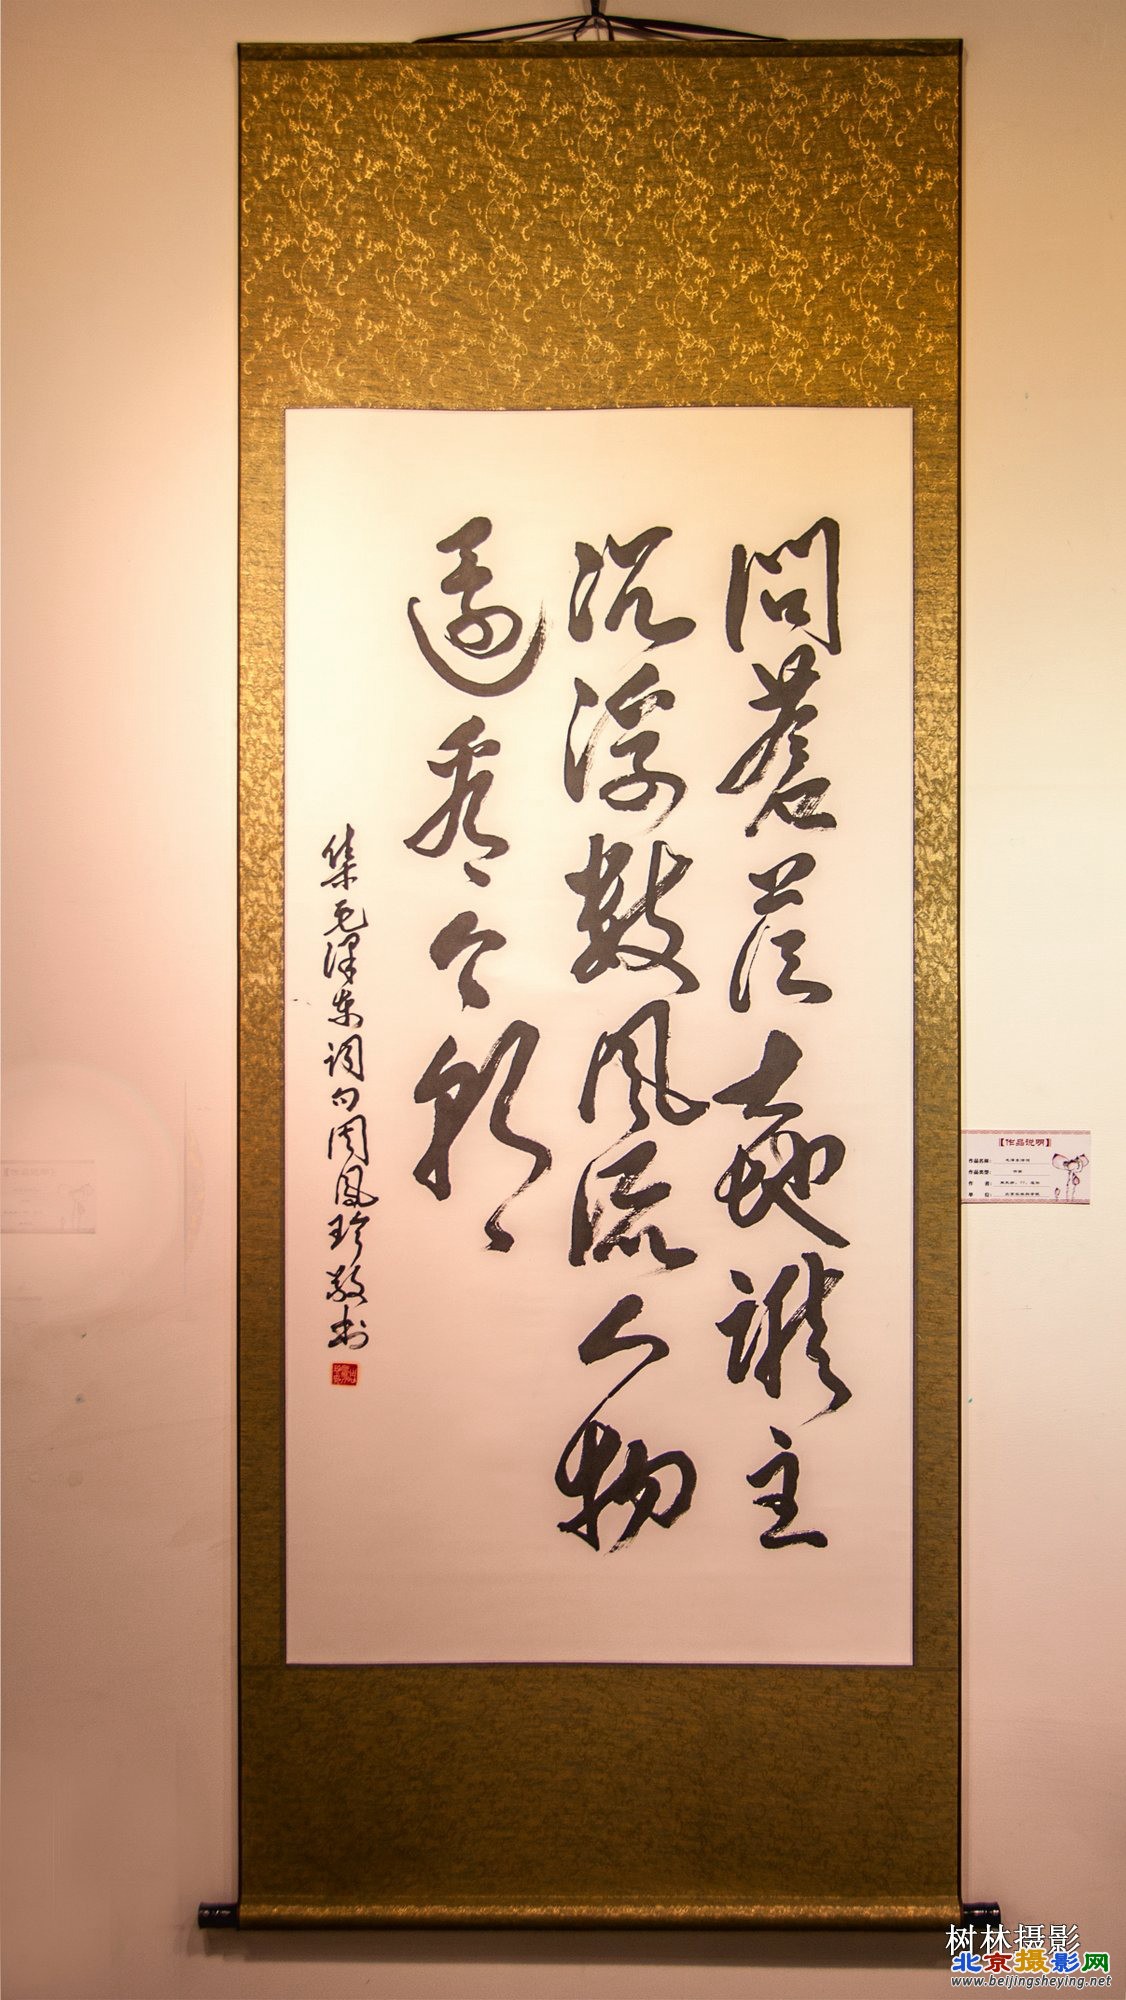 問蒼茫大地誰主
沉浮數風流人物
還看今朝
集毛澤东词句周凤珍敬书
【作品说明】
作品名称:
作品类型: 书画
作 者:
单 位:
树林摄影
北京摄影网
www.beijingsheying.net